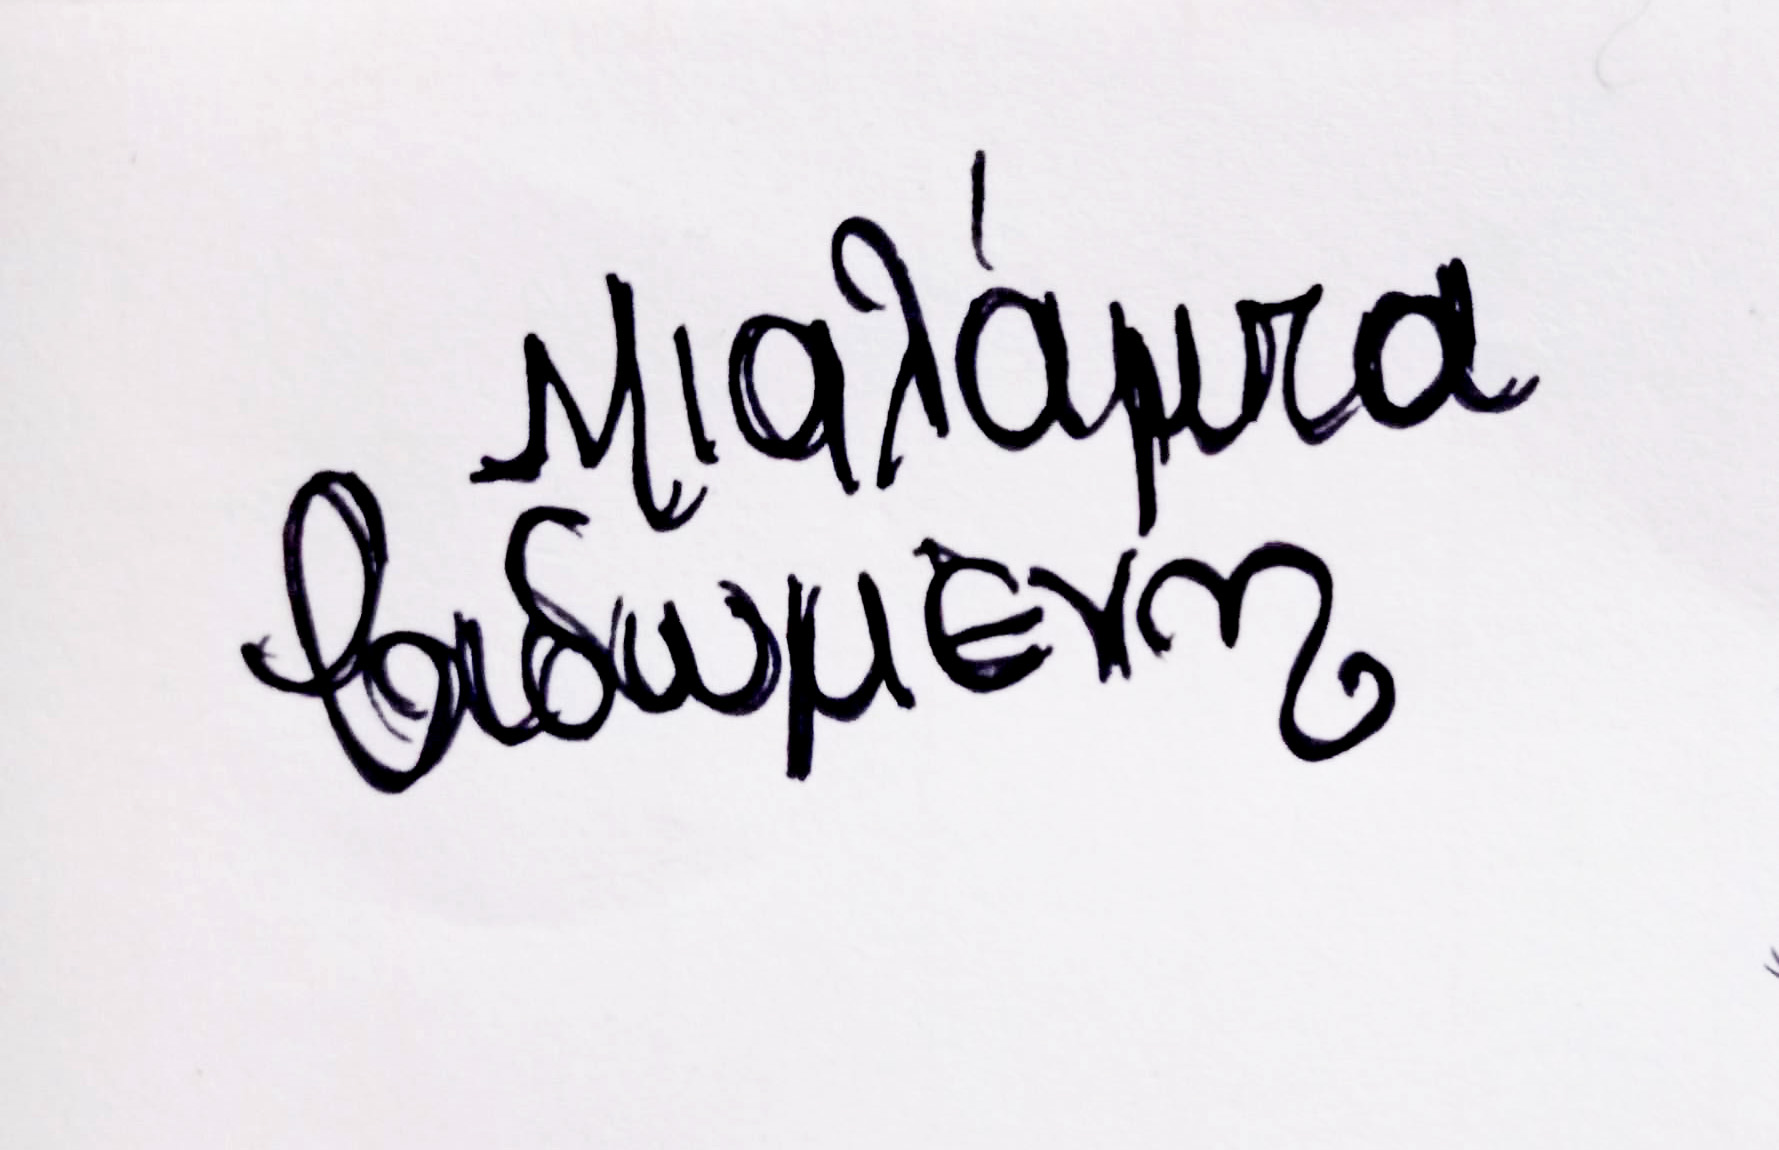 Μια λάμπα
βιδωμενη